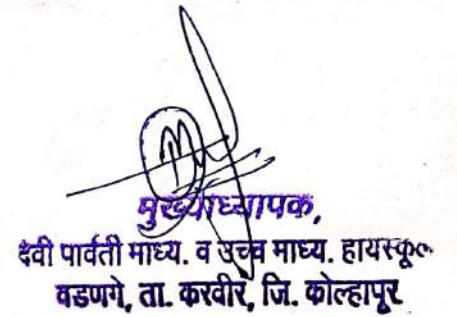 मुख्याध्यापक,
देवी पार्वती माध्य. व उच्च माध्य. हायस्कूल
वडणगे, ता. करवीर, जि. कोल्हापूर